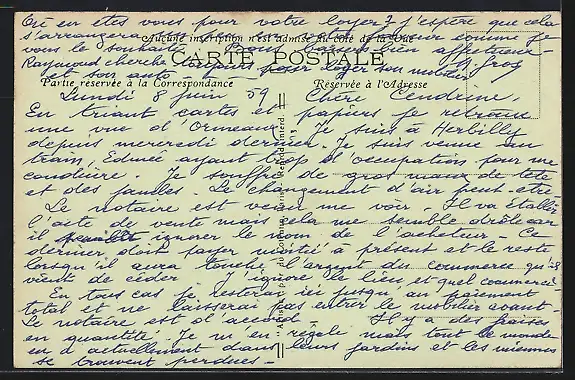 Où en êtes vous pour votre loyer? J'espère que cela
s'arrangera comme je
Aucune inscription n'est admise du côté de la Vue
vous le souhaite. Bons baisers bien affectueux
CARTE POSTALE
Raymond cherche toujours pour loger son mobilier
et son auto - M. Gros
Partie réservée à la Correspondance
Réservée à l'Adresse
Lundi 8 juin 59 Chère Cendrine,
En triant cartes et papiers je retrouve
une vue d'Ormeaux. Je suis à Herbilly
depuis mercredi dernier. Je suis venue en
train, Edmée ayant trop d'occupations pour me
conduire. Je souffre de gros maux de tête
et des jambes. Le changement d'air peut-être
Le notaire est venu me voir. Il va établir
l'acte de vente mais cela me semble drôle car
il ignorer le nom de l'acheteur. Ce
dernier doit payer moitié à présent et le reste
lorsqu'il aura touché l'argent du commerce qu'il
vient de céder. J'ignore le lieu, et quel commerce
En tous cas je resterai ici jusqu'au paiement
total et ne laisserai pas entrer le mobilier avant.
Le notaire est d'accord. Il y a des fraises
en quantité. Je m'en régale mais tout le monde
en a actuellement dans leurs jardins et les miennes
se trouvent perdues -